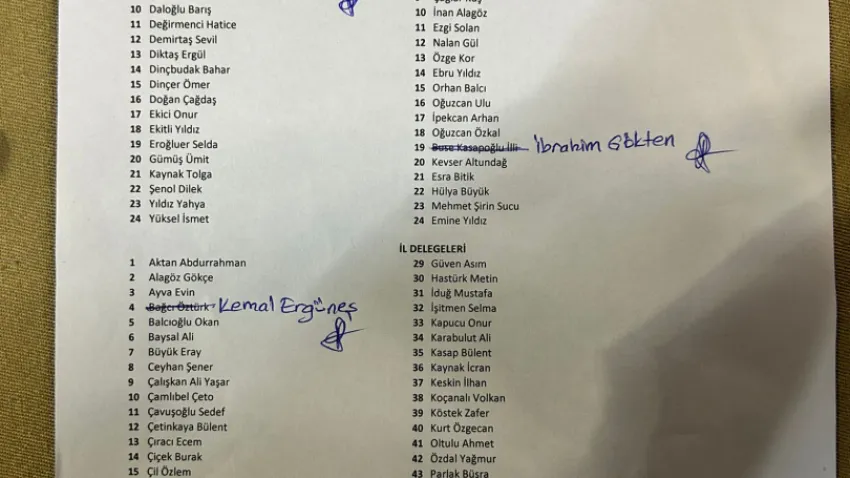 10 Daloğlu Barış
11 Değirmenci Hatice
12 Demirtaş Sevil
13 Diktaş Ergül
14 Dinçbudak Bahar
15 Dinçer Ömer
16 Doğan Çağdaş
17 Ekici Onur
18 Ekitli Yıldız
19 Eroğluer Selda
20 Gümüş Ümit
21 Kaynak Tolga
22 Şenol Dilek
23 Yıldız Yahya
24 Yüksel İsmet
10 İnan Alagöz
11 Ezgi Solan
12 Nalan Gül
13 Özge Kor
14 Ebru Yıldız
15 Orhan Balcı
16 Oğuzcan Ulu
17 İpekcan Arhan
18 Oğuzcan Özkal
19 Buse Kasapoğlu İlli İbrahim Gökten
20 Kevser Altundağ
21 Esra Bitik
22 Hülya Büyük
23 Mehmet Şirin Sucu
24 Emine Yıldız
İL DELEGELERİ
1 Aktan Abdurrahman
2 Alagöz Gökçe
3 Ayva Evin
4 Bağcı Öztürk Kemal Ergüneş
5 Balcıoğlu Okan
6 Baysal Ali
7 Büyük Eray
8 Ceyhan Şener
9 Çalışkan Ali Yaşar
10 Çamlıbel Çeto
11 Çavuşoğlu Sedef
12 Çetinkaya Bülent
13 Çıracı Ecem
14 Çiçek Burak
15 Çil Özlem
29 Güven Asım
30 Hastürk Metin
31 İduğ Mustafa
32 İşitmen Selma
33 Kapucu Onur
34 Karabulut Ali
35 Kasap Bülent
36 Kaynak İcran
37 Keskin İlhan
38 Koçanalı Volkan
39 Köstek Zafer
40 Kurt Özgecan
41 Oltulu Ahmet
42 Özdal Yağmur
43 Parlak Büşra